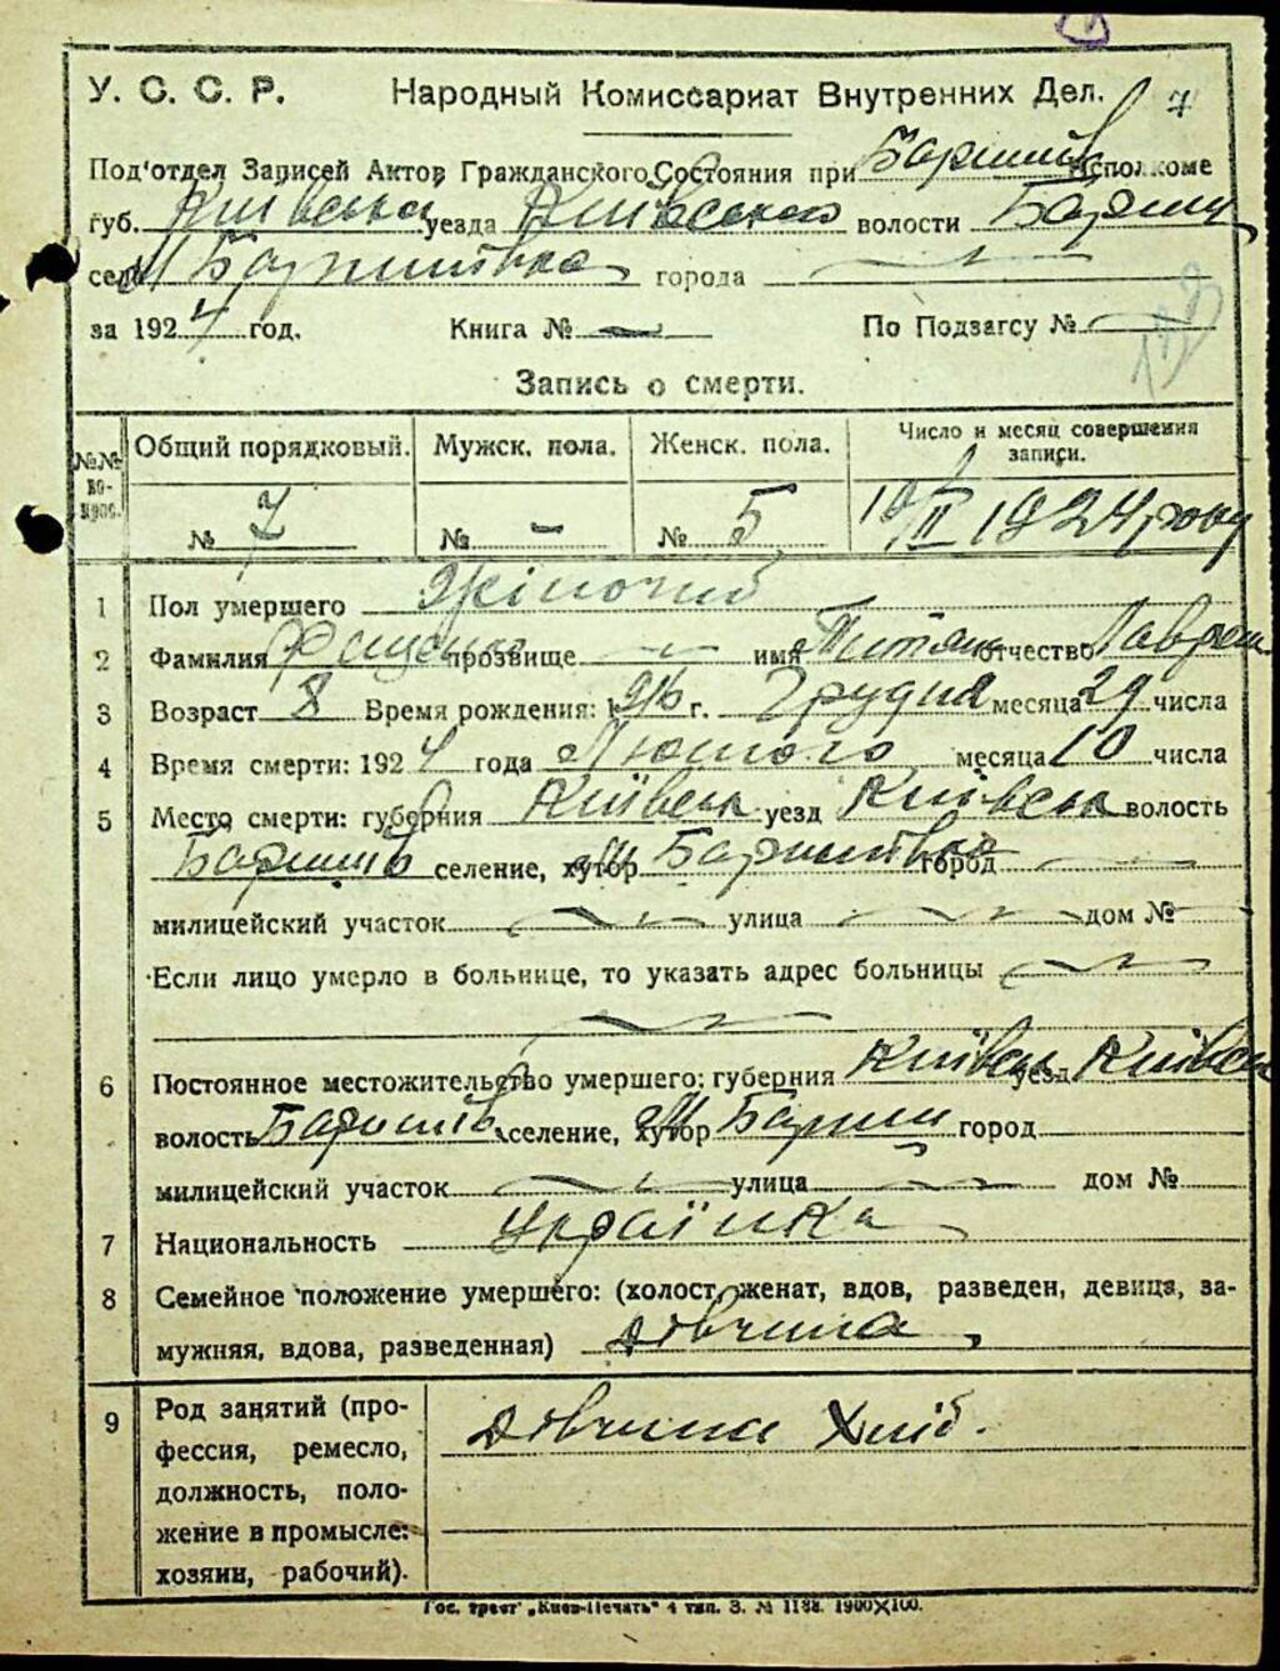 7
У. С. С. Р. Народный Комиссариат Внутренних Дел.
Под'отдел Записей Актов Гражданского Состояния при Баришів Исполкоме
губ. Київська уезда Київського волости Бариш
село М Баришівка города
за 1924 год. Книга № По Подзагсу №
Запись о смерти.
№№ вопрос. Общий порядковый. Мужск. пола. Женск. пола. Число и месяц совершения записи.
№ 7 № – № 5 10/II 1924 року
1 Пол умершего Жіночий
2 Фамилия прозвище имя Титяна отчество Лаврен
3 Возраст 8 Время рождения: 1916 г. Грудня месяца 29 числа
4 Время смерти: 1924 года Лютого месяца 10 числа
5 Место смерти: губерния Київськ уезд Київськ волость
Баришів селение, хутор М Баришівка город
милицейский участок улица дом №
Если лицо умерло в больнице, то указать адрес больницы
6 Постоянное местожительство умершего: губерния Київськ уезд Київськ
волость Баришів селение, хутор М Бариш город
милицейский участок улица дом №
7 Национальность Українка
8 Семейное положение умершего: (холост, женат, вдов, разведен, девица, за-
мужняя, вдова, разведенная) дівчина
9 Род занятий (про-
фессия, ремесло,
должность, поло-
жение в промысле:
хозяин, рабочий).
дівчина Хліб.
Гос. трест „Киев-Печать" 4 тип. З. № 1188. 1900X100.